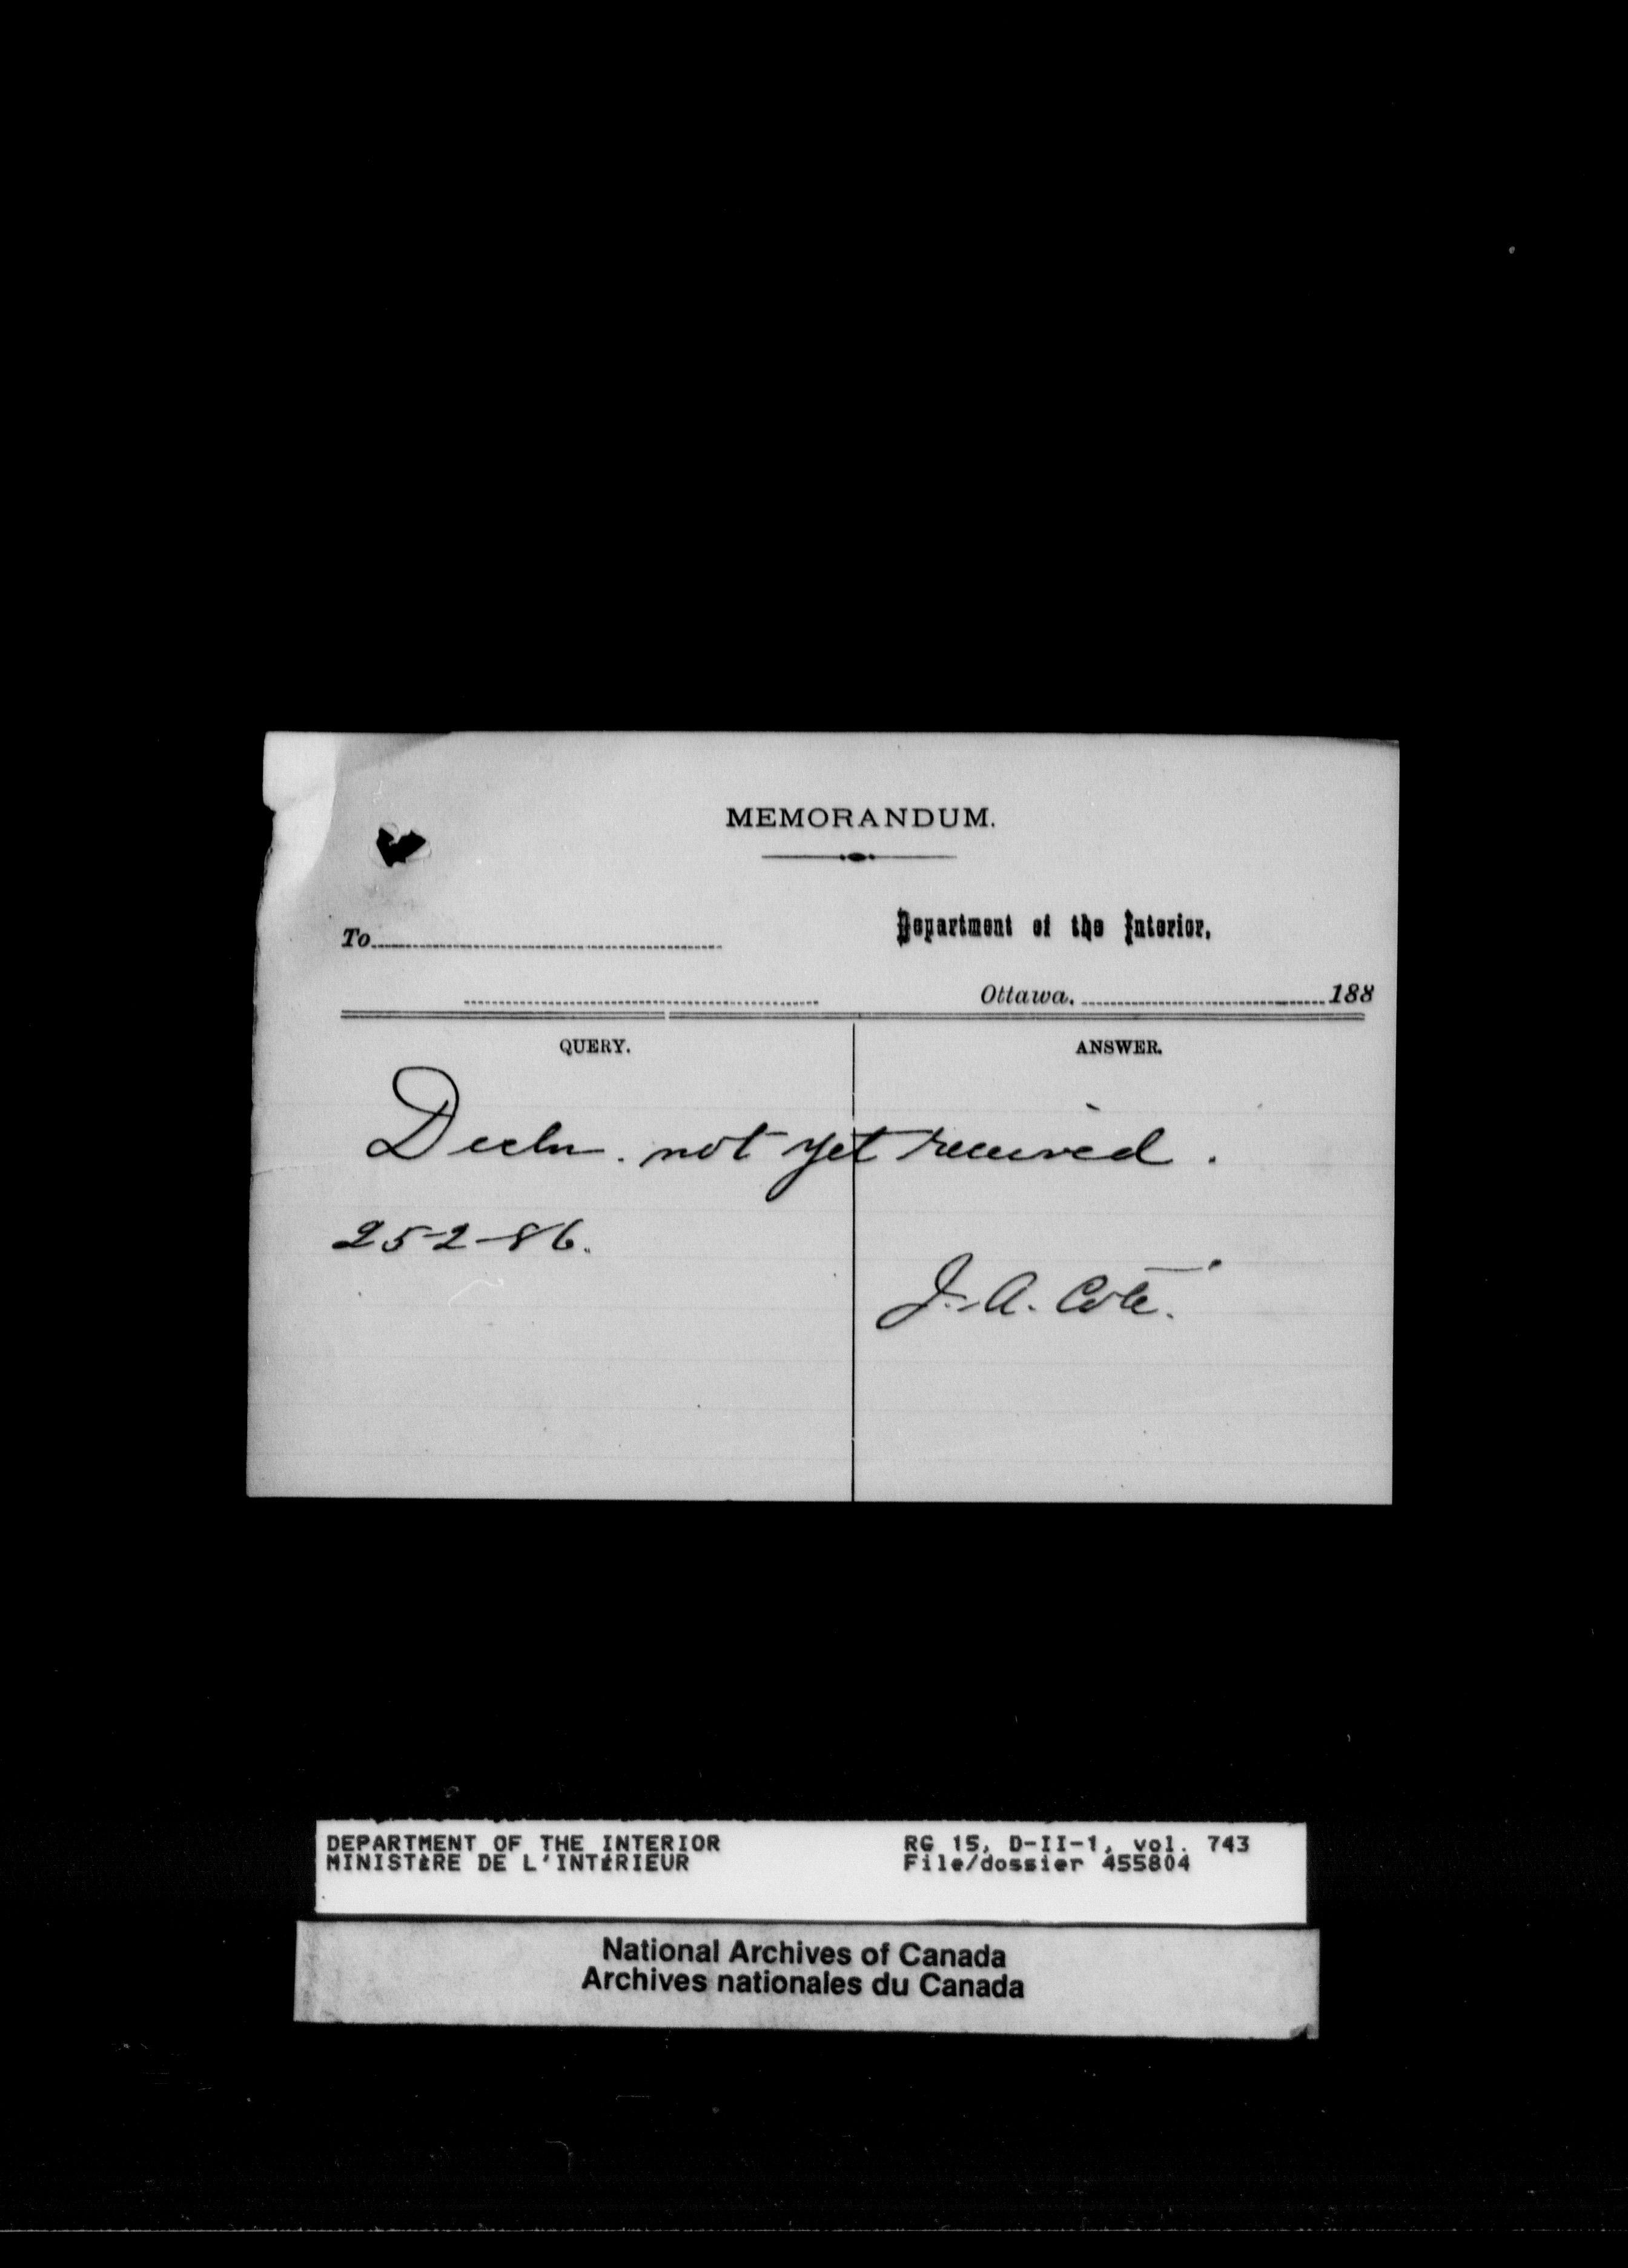 MEMORANDUM.
To
Department of the Interior.
Ottawa, 188
QUERY. ANSWER.
Decln. not yet received.
25-2-86.
J. A. Coté.
DEPARTMENT OF THE INTERIOR RG 15, D-II-1, vol. 743
MINISTÈRE DE L'INTÉRIEUR File/dossier 455804
National Archives of Canada
Archives nationales du Canada